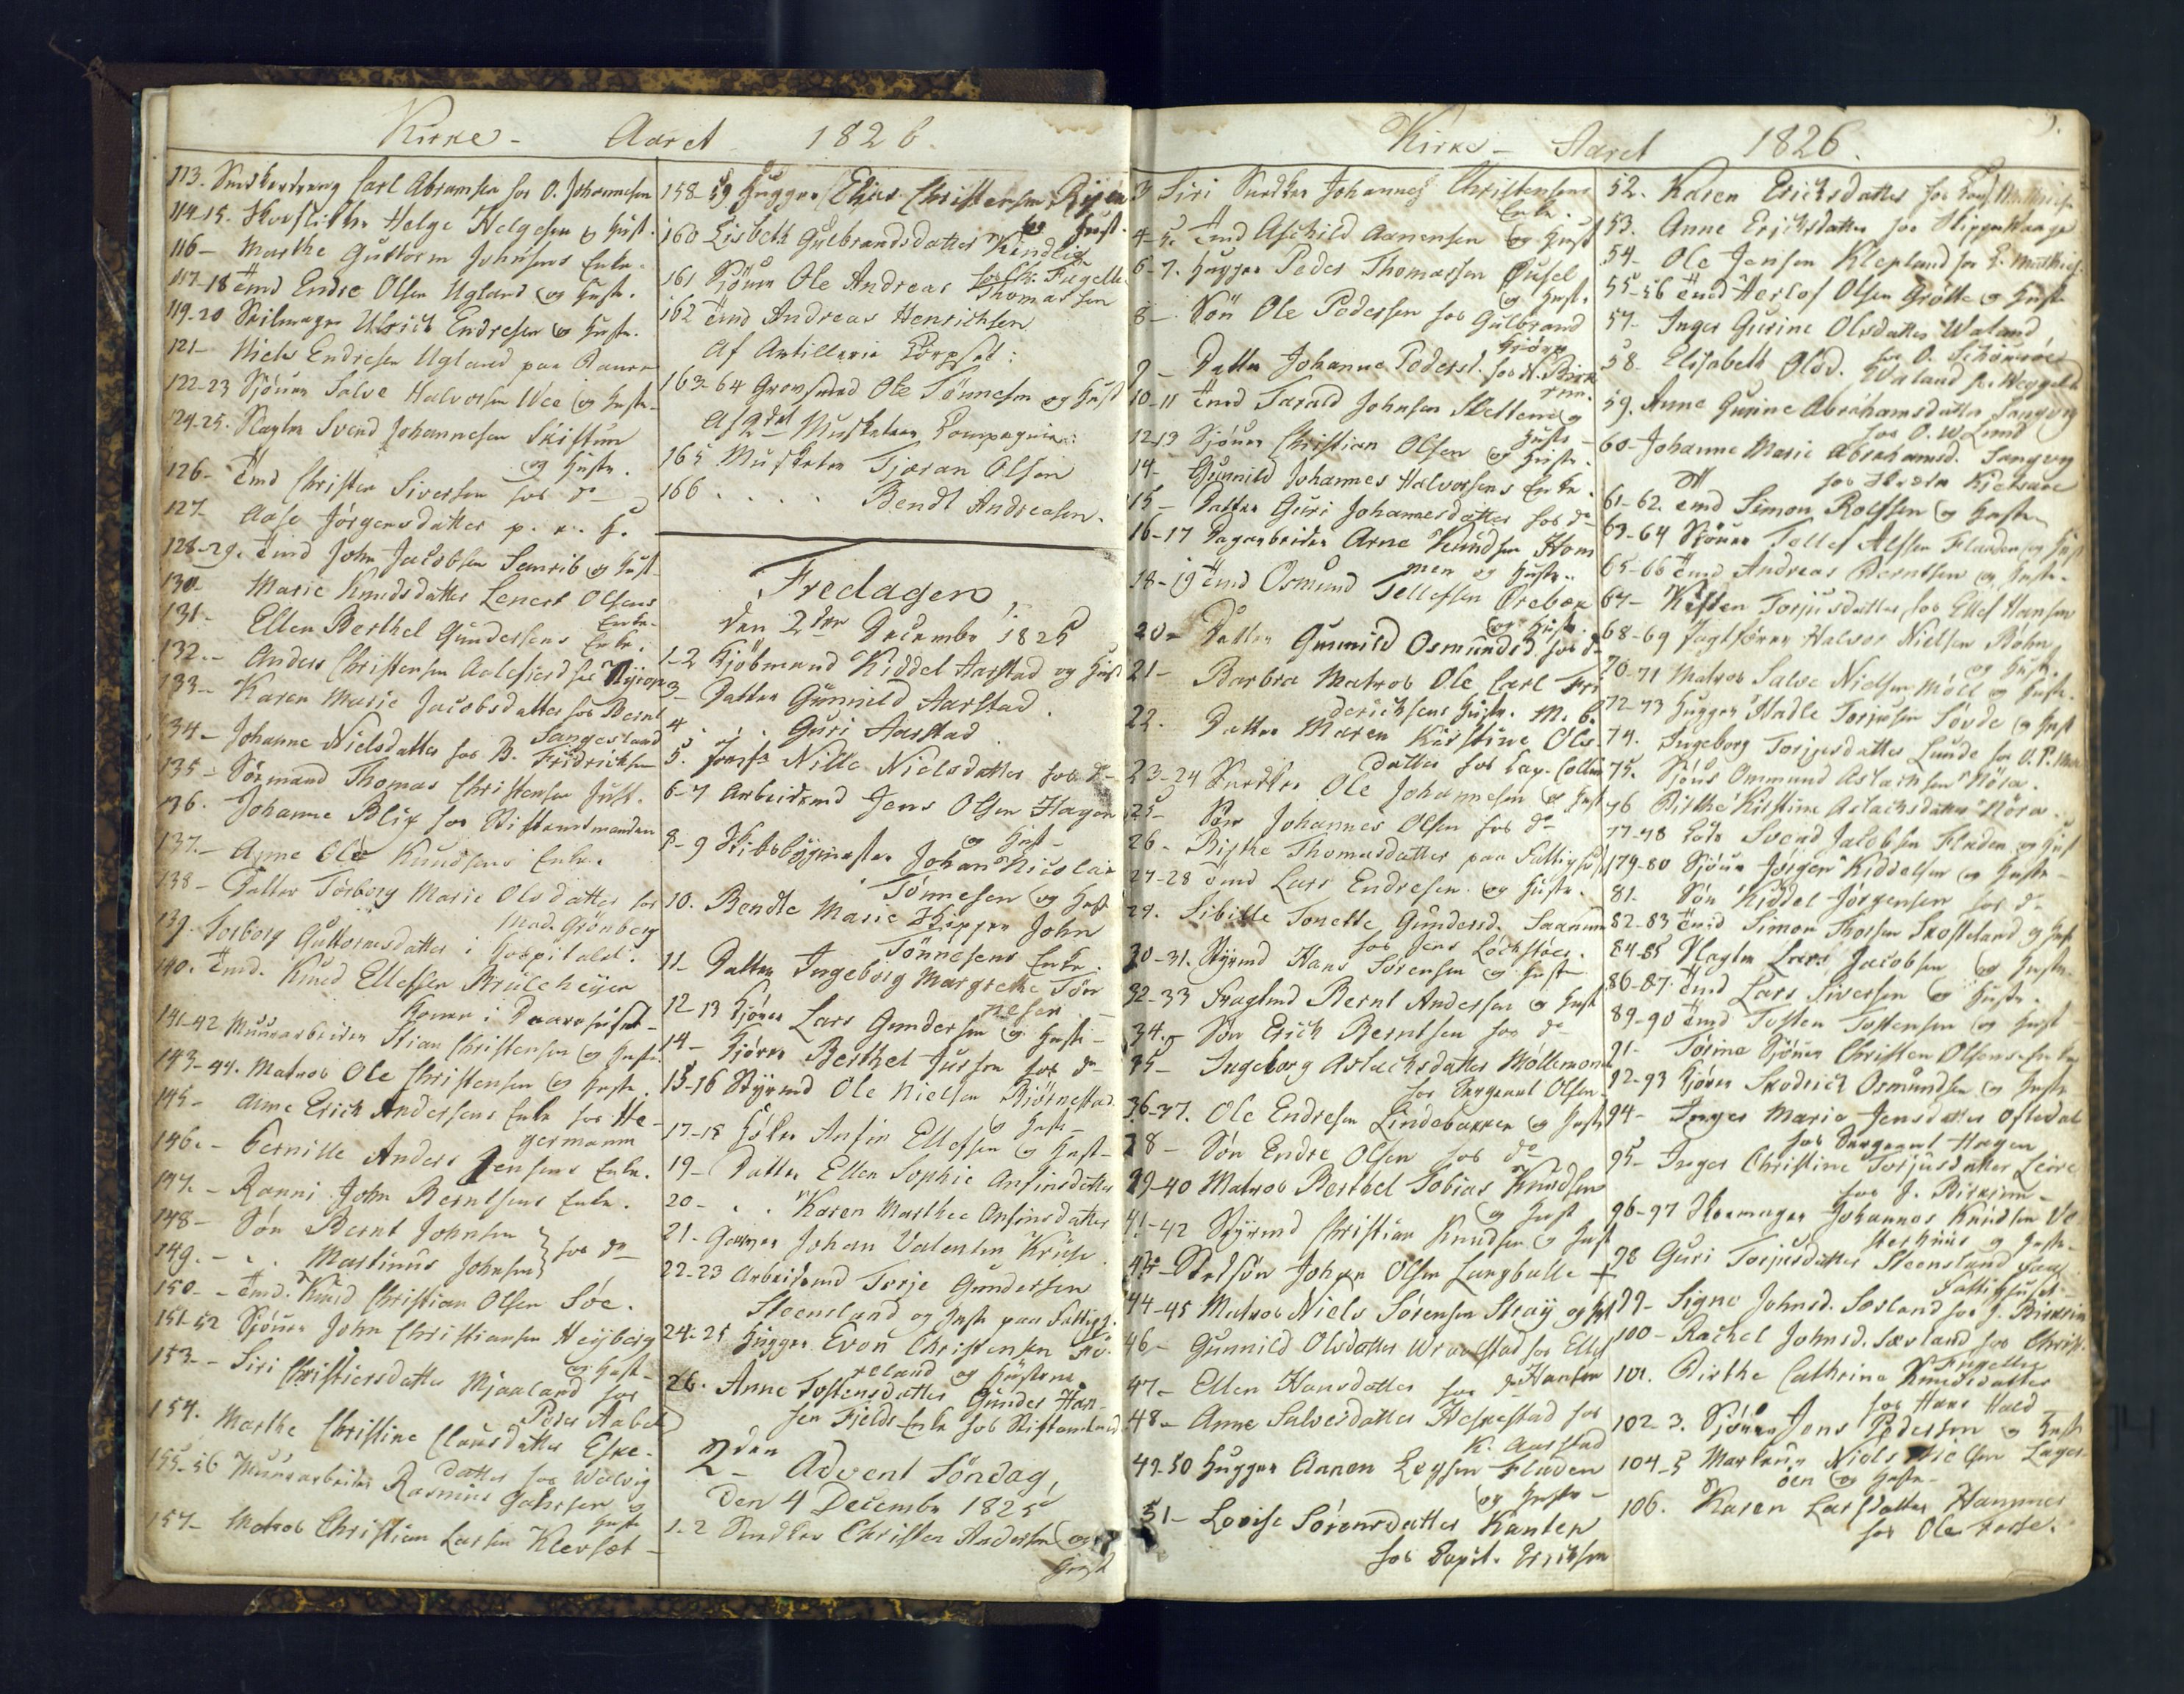 Kirke - Aaret 1826.
113. Snedkerdreng Carl Abramsen hos O. Johannesen
114-15. Helge Helgesen og Hust.
116- Marthe Guttorm Johnsens Enke.
117-18 Tmd Endre Olsen Ugland og Hustr.
119-20 Seilmager Ulrich Endresen og Hustr.
121- Niels Endresen Ugland paa
122-23 Sjöman Salve Halvorsen Wee og Hustr.
124-25. Svend Johannesen Skiftun
og Hustr.
126. Tmd Christen Siversen hos do
127 Aase Jörgensdatter p. H.
128-29. Tmd John Jacobsen og Hust
130- Marie Knudsdatter Lenert Olsens
Enke.
131- Ellen Berthel Gundersens Enke.
132.- Anders Christensen Aalefjerd hos
133- Karen Marie Jacobsdatter hos Bernt
Tangesland
134- Johanne Nielsdatter hos B. Fridrichsen
135- Sörmand Thomas Christensen Hust.
136. Johanne Blix hos Stiftamtmanden
137.- Anne Ole Knudsens Enke.
138- Datter Torborg Marie Olsdatter hos
Mad. Grönberg
139. Torborg Guttormsdatter i Hospitalet.
140. Tmd. Knud Ellefsen Brulcheijen
Konen i Daarehuset-
141-42 Muurarbeider Stian Christensen og Hustr.
143-44. Matros Ole Christensen og Hustr.
145- Anne Erich Andersens Enke hos He-
germann
146.- Pernille Anders Jensens Enke.
147.- Ranni John Berntsens Enke.
148- Sön Bernt Johnsen
149.- . . Martinus Johnsen } hos do
150.- Tmd. Knud Christian Olsen Söe.
151-52 Sjöman John Christiansen Heyberg
og Hust-
153.- Siri Christiersdatter Mjaaland hos
Peder Aabel
154. Marthe Christine Clausdatter Eske-
datter hos Walvig
155-56 Muurarbeider Rasmus Gahrsen og
Hustr
157- Matros Christian Larsen Klevset-
158-59 Hugger Elias Christensen
og Hust.
160 Lisbeth Gulbrandsdatter Kindlig
hos Chr. Fugelli
161 Sjöman Ole Andreas Thomassen
162 Tmd Andreas Henrichsen
Af Artillerie Corpset:
163-64 Ole Tönnesen og Hust
Af 2det Musketeer Compagnie:
165 Musketer Tjæran Olsen
166 . . . . Bendt Andreasen.
Fredagen
den 2den December 1825
1-2 Kjöbmand Kiddel Aarstad og Hust
3- Datter Gunnild Aarstad.
4 . . Guri Aarstad
5. Jomfr Nille Nielsdatter hos do-
6-7 Arbeidsmd Jens Olsen Hagen
og Hust-
8-9 Skibsbygmester Johan Nicolai
Tönnesen og Hust
10. Bendte Marie Skipper John
Tönnesens Enke.
11- Datter Ingeborg Margrethe Tön
nesen.
12-13 Kjörer Lars Gundersen og Hustr-
14- Kjörer Berthel Jurssen hos do-
15-16 Styrmd Ole Nielsen Biörnestad
og Hustr-
17-18 Ansin Ellefsen og Hust-
19- Datter Ellen Sophie Ansinsdatter
20- . . Karen Marthee Ansinsdatter
21- Garver Johan Valentin Kruse
22-23 Arbeidsmd Terje Gundersen
Steensland og Hustr paa Fattigh.
24-25 Hugger Even Christensen Fö-
reland og Hustrue
26. Anne Tostensdatter Gunder Han-
sen Fjelds Enke hos Stiftamtmd.
2den Advent Söndag,
den 4 December 1825
1-2 Snedker Christen Andersen og
Hust
Kirke - Aaret 1826.
3 Siri Snedker Johannes Christensens
Enke.
4-5. Tmd Aschild Aanensen og Hust
6-7. Hugger Peder Thomassen Öusel
og Hust.
8- Sön Ole Pedersen hos Gulbrand
9- Datter Johanne Pedersd. hos N. Birk-
rem.
10-11 Tmd Tarald Johnsen Slettene og
Hustr-
12-13 Sjöman Christian Olsen og Hustr.
14- Gunnild Johannes Halvorsens Enke.
15- Datter Guri Johannesdatter hos do
16-17 Dagarbeider Arne Knudsen Hom
men og Hustr.
18-19 Tmd Osmund Tellefsen Örebæk
og Hustr.
20- Datter Gunnild Osmundsd. hos do
21- Barbra Matros Ole Carl Fri
derichsens Hustr.
22. Datter Maren Kirstine Ols-
datter hos Cap. Collin
23-24 Snedker Ole Johannesen og Hust
25- Sön Johannes Olsen hos do
26- Birthe Thomasdatter paa Fattighuset
27-28 Tmd Lars Endresen og Hustr.
29. Sibille Tonette Gundersd. Saanum
hos Jens Lochstöer.
30-31. Styrmd Hans Sörensen og Hust-
32-33 Fragtmd Bernt Andersen og Hust
34.- Sön Erich Berntsen hos do
35- Ingeborg Aslachsdatter Möllemoen
hos Sergeant Olsen.
36-37. Ole Endresen Lindebakken og Hustr
38- Sön Endre Olsen hos do
39-40 Matros Berthel Tobias Knudsen
og Hust
41-42 Styrmd Christian Knudsen og Hust
43- Stedsön Johan Olsen Langballe
44-45 Matros Niels Sörensen Straij og Hust
46- Gunnild Olsdatter Wraalstad hos Ellef
Hansen
47- Ellen Hansdatter hos do
48- Anne Salvesdatter Heskestad hos
K. Aarstad
49-50 Hugger Aanen Leysen Fladen
og Hustr-
51- Lovise Sörensdatter Kanten
hos Capit. Erichsen
52. Karen Erichsdatter hos
53. Anne Erichsdatter hos Skipper Haage
54- Ole Jensen Klepland hos E. Mathies.
55-56 Tmd Herlof Olsen Grötte og Hustr
57- Inger Gurine Olsdatter Waland
hos O.
58- Elisabeth Olsd. Waland hos
59. Anne Gurine Abrahamsdatter Sangvig
hos O. W. Lund
60- Johanne Marie Abrahamsd. Sangvig
hos
61-62. Tmd Simon Rolfsen og Hustr
63-64 Sjöman Tellef Alfsen Fladen og Hust
65-66 Tmd Andreas Berntsen og Hustr.
67- Kisten Torjusdatter hos Ellef Hansen
68-69 Jagtförer Halvor Nielsen Böhn
og Hustr.
70-71 Matros Salve Nielsen Möll og Hustr.
72-73 Hugger Hadle Torjusen Sövde og Hust
74. Ingeborg Torjusdatter Lunde hos O. P. Moe
75. Sjöm Ommund Aslachsen Nöra.
76 Birthe Kirstine Aslachsdatter Nöra.
77-78 Lods Svend Jacobsen Fladen og Hust
179-80 Sjöman Jörgen Kiddelsen og Hustr-
81. Sön Kiddel Jörgensen hos do
82-83 Tmd Simon Thorsen Skofteland og Hustr
84-85 Lars Jacobsen og Hustr-
86-87. Tmd Lars Siversen og Hustr.
89-90 Tmd Tosten Tostensen og Hust-
91- Torine Sjöman Christen Olsens Enke
92-93 Kjörer Skodrich Osmundsen og Hustr
94- Inger Marie Jensdatter Oftedal
hos Sergeant Hagen
95- Inger Christine Torjusdatter Leire
hos J. Birkrem-
96-97 Skomager Johannes Knudsen Ve
sterhuus og Hustr-
98 Guri Torjusdatter Steensland paa
Fattighuset-
99- Signe Johnsd. Særland hos J. Birkrem
100- Rachel Johnsd. Særland hos Christ.
Fugellie
101. Birthe Cathrine Knudsdatter
hos Hans Hald
102-3. Sjöman Jens Pedersen og Hustr
104-5 Niels Nielsen Lager-
öen og Hustr-
106. Karen Larsdatter Hammer
hos Ole Fosse.